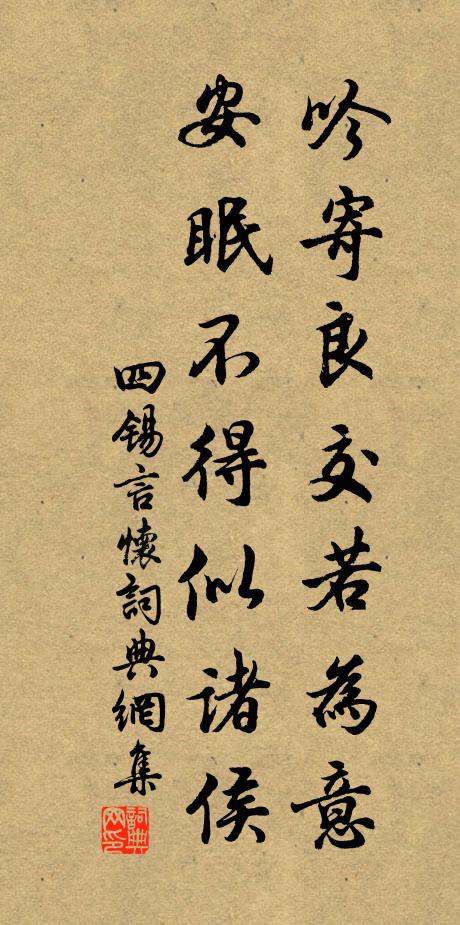 吟寄良交若為意
安眠不得似諸侯
四錫言懷詞典網集
詞典
网印